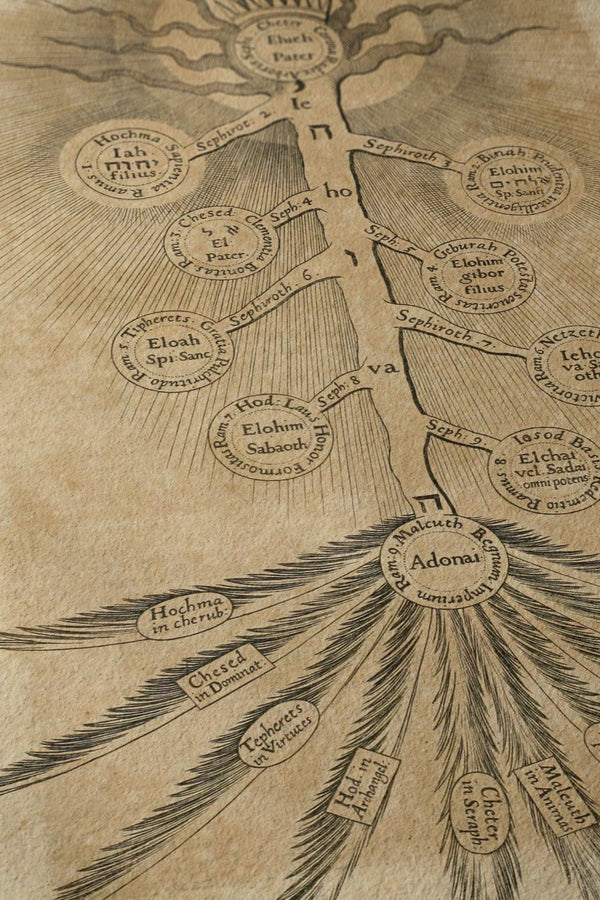 Cheter
Elueh
Pater
Ie
ה
Hochma Sapientia Ramus. 1.
Iah
יהוה
filius.
Sephirot. 2
Sephiroth 3
Binah Prudentia Intelligentia Ram. 2.
Elohim
Sp: Sanct
ho
Chesed. Clementia Bonitas Ram. 3.
El.
Pater
Seph: 4
Seph: 5
Geburah Potestas seueritas Ram. 4.
Elohim
gibor
filius.
י
Tipherets. Gratia Pulchritudo Ram. 5.
Eloah
Spi: Sanc
Sephiroth. 6.
Sephiroth. 7.
Netzeth
Victoria Ram. 6.
Ieho
va Sa
oth
va
Hod: Laus Honor Formositas Ram. 7.
Elohim
Sabaoth
Seph: 8
Seph: 9.
Iesod Basis
Redemtio Ramus 8.
Elchai
vel. Sadai
omni potens.
ה
Malcuth Regnum Imperium Ram: 9.
Adonai
Hochma
in cherub:
Chesed
in Dominat.
Tepherets
in Virtutes
Hod. in
Archangel.
Cheter
in Seraph:
Malcuth
in Animus